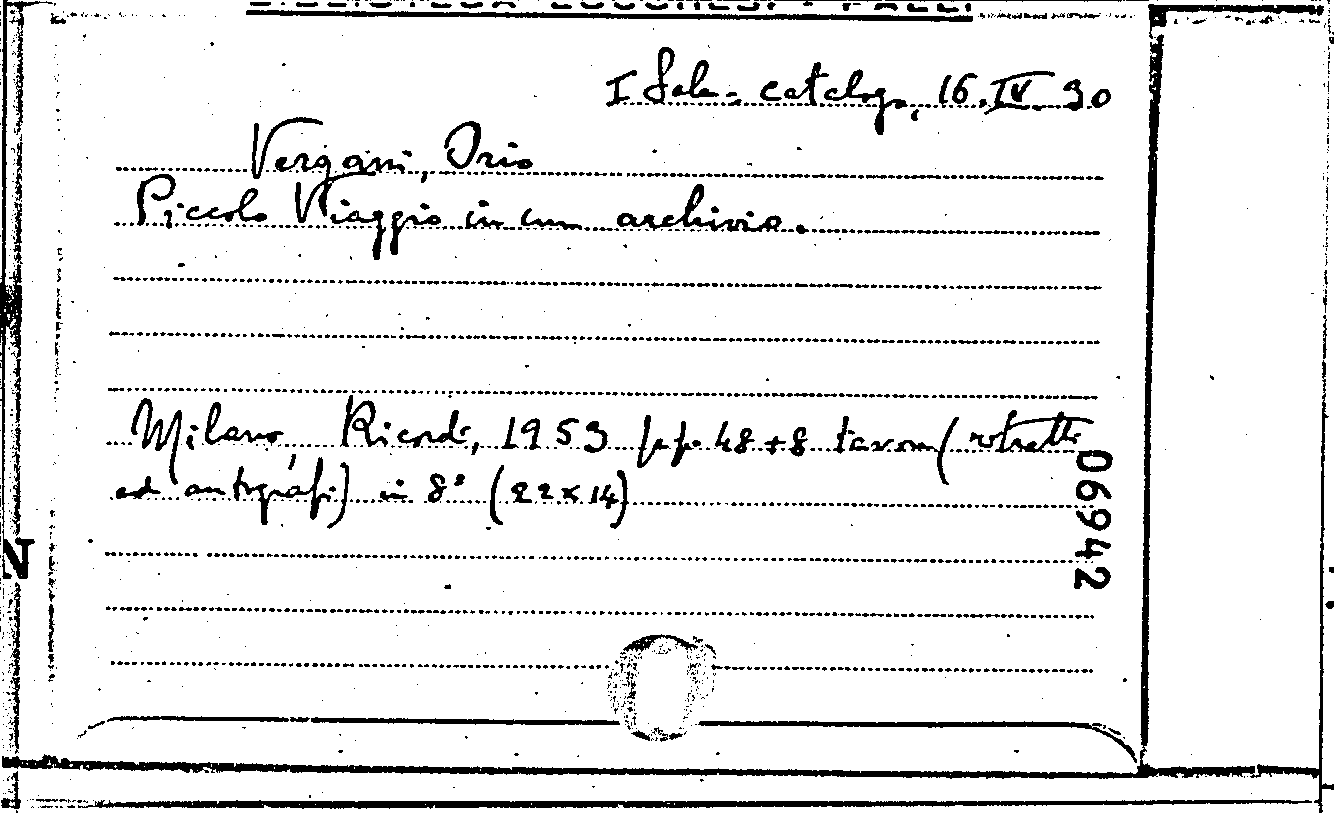 BIBLIOTECA LUCCHESI - PALLI
I Sala - catalogo, 16.IV.30
Vergani, Orio
Piccolo Viaggio in un archivio.
Milano, Ricordi, 1953 pp. 48+8 tavom (ritratti
ed autografi) in 8° (22x14)
06942
N